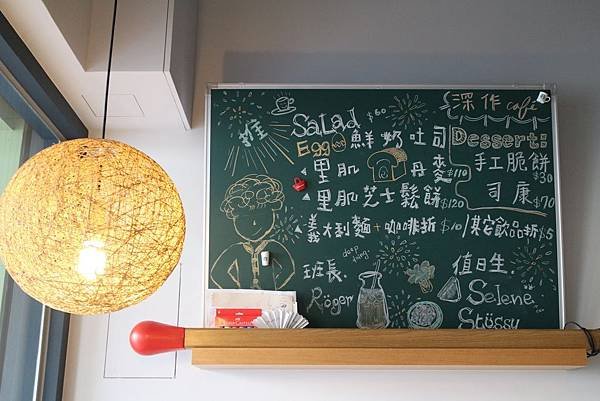 推
Salad $60
Egg 鮮奶吐司
里肌 丹麥 $110
里肌芝士鬆餅 $120
義大利麵+咖啡折$10/其它飲品折$5
深作 café
Dessert:
手工脆餅 $30
司康 $70
班長.
Roger
deep
值日生.
Selene
Stüssy